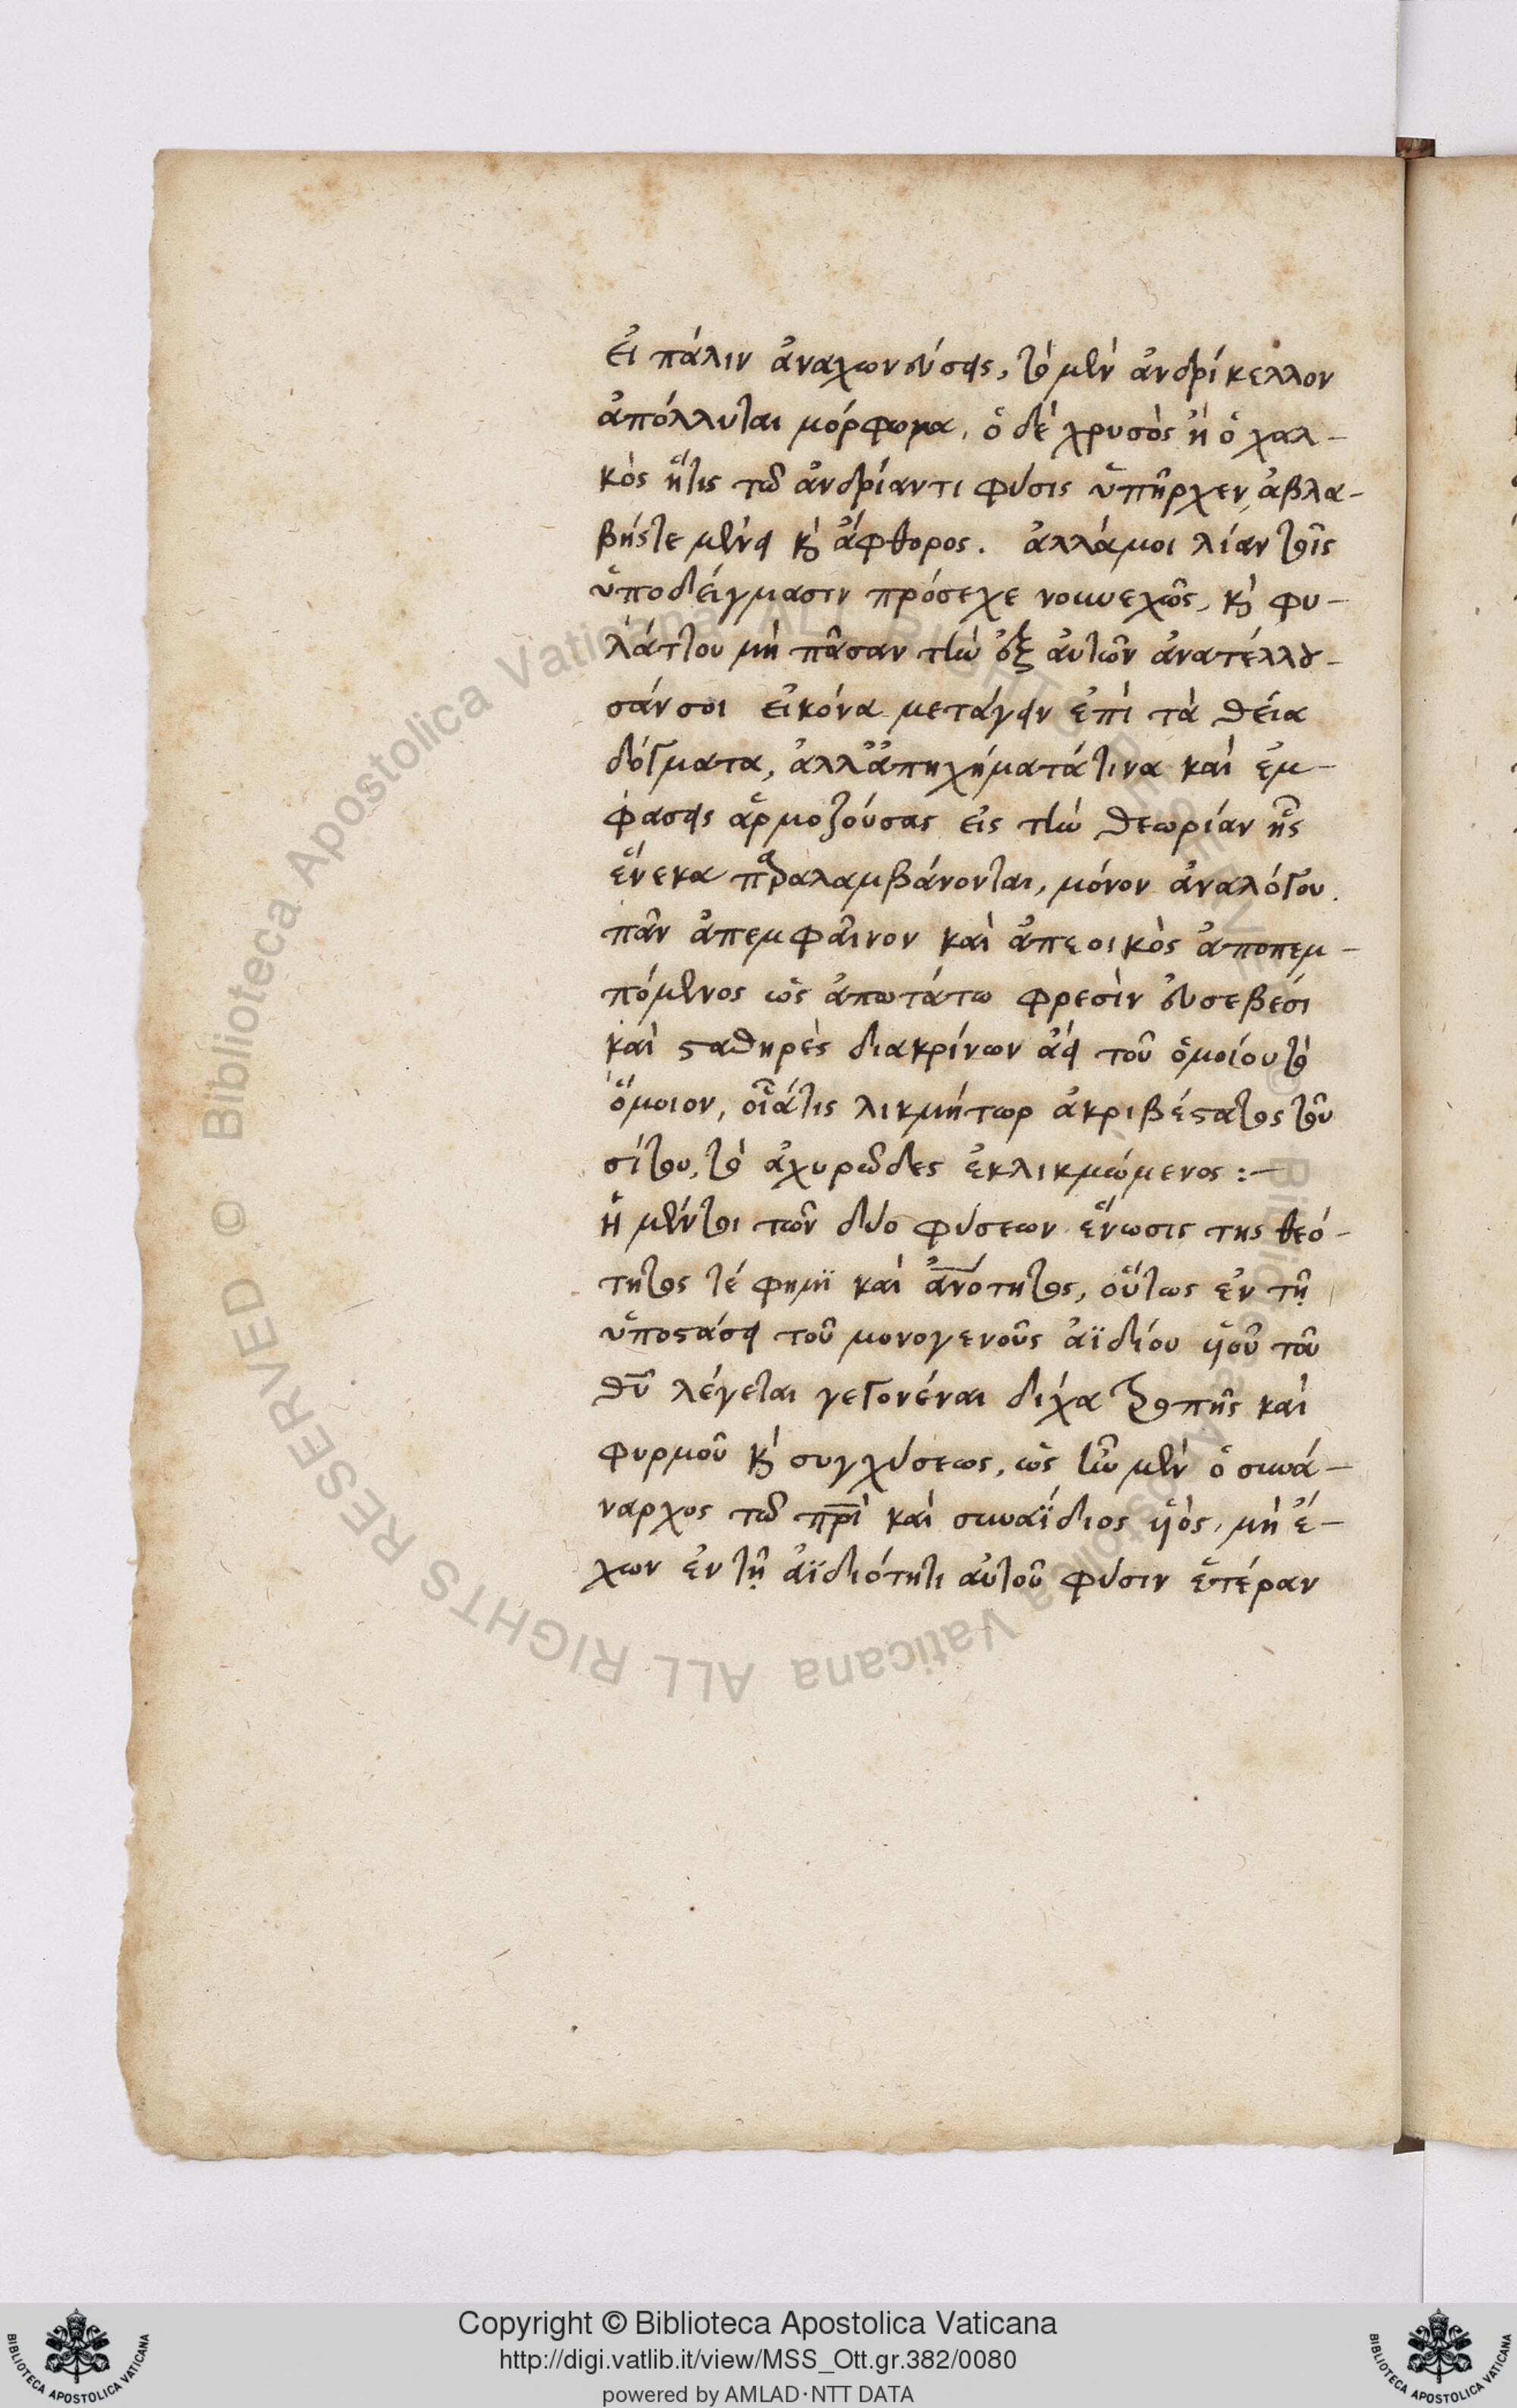 εἰ πάλιν ἀναχωνεύσεις, τὸ μὲν ἀνδρίκελλον
ἀπόλλυται μόρφωμα, ὁ δὲ χρυσὸς ἢ ὁ χαλ-
κὸς ἥτις τῶ ἀνδρίαντι φύσις ὑπῆρχεν, ἀβλα-
βής τε μένει κ̀ ἄφθορος. ἀλλά μοι λίαν τοῖς
ὑποδείγμασιν πρόσεχε νουνεχῶς, κ̀ φυ-
λάττου μὴ πᾶσαν τὴν ἐξ αὐτῶν ἀνατέλλου-
σάν σοι εἰκόνα μετάγειν ἐπὶ τὰ θεία
δόγματα, ἀλλ' ἀπηχήματά τινα καὶ ἐμ-
φάσεις ἁρμοζούσας εἰς τὴν θεωρίαν ἧς
ἕνεκα παραλαμβάνονται, μόνον ἀναλόγου.
πᾶν ἀπεμφαῖνον καὶ ἀπεοικὸς ἀποπεμ-
πόμενος ὡς ἀπωτάτω φρεσὶν εὐσεβέσι
καὶ σταθηρὲς διακρίνων ἀεὶ τοῦ ὁμοίου τὸ
ὅμοιον, οἷά τις λικμήτωρ ἀκριβέστατος τοῦ
σίτου, τὸ ἀχυρῶδες ἐκλικμώμενος :-
ἡ μέντοι τῶν δύο φύσεων ἕνωσις της θεό-
τητος τέ φημϊ καὶ ἀν̅ότητος, οὕτως ἐν τῇ
ὑποστάσει τοῦ μονογενοῦς ἀϊδίου υἱοῦ τοῦ
θυ̅ λέγεται γεγονέναι δίχα τροπῆς καὶ
φυρμοῦ κ̀ συγχύσεως, ὡς ἦν μὲν ὁ συνά-
ναρχος τῶ πρι̅ καὶ συναΐδιος υἱὸς, μὴ ἔ-
χων ἐν τῇ ἀϊδιότητι αὐτοῦ φύσιν ἑτέραν
Copyright © Biblioteca Apostolica Vaticana
http://digi.vatlib.it/view/MSS_Ott.gr.382/0080
powered by AMLAD·NTT DATA